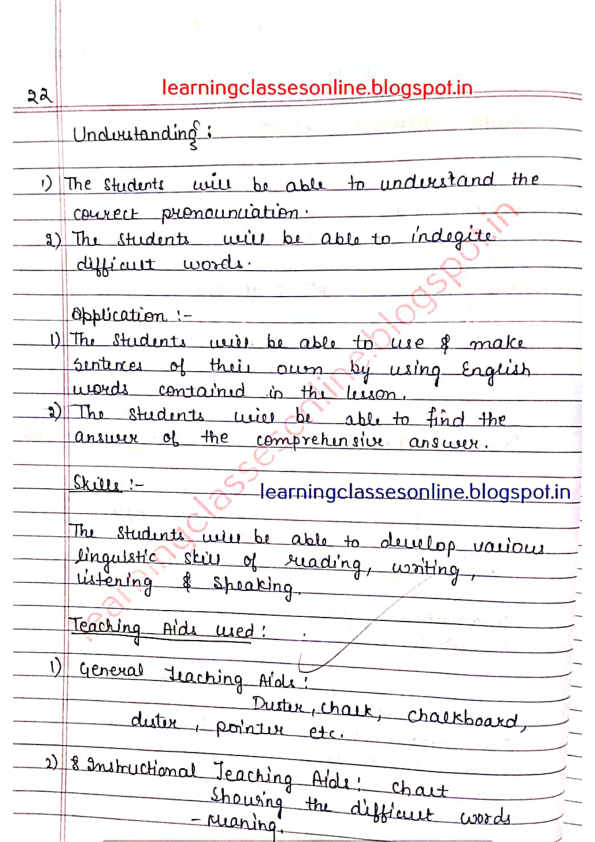 22
learningclassesonline.blogspot.in
Understanding :
1) The students will be able to understand the
correct pronounuiation.
2) The students will be able to indegite
difficult words.
Application :-
1) The students will be able to use & make
sentences of their own by using English
words contained in the lesson.
2) The students will be able to find the
answer of the comprehensive answer.
Skills :-
learningclassesonline.blogspot.in
The students will be able to develop various
linguistic skill of reading, writing,
listening & speaking.
Teaching Aids used :
1) General Teaching Aids :
Duster, chalk, chalkboard,
duster, pointer etc.
2) & Instructional Teaching Aids : chart
showing the difficult words
- meaning.
learningclassesonline.blogspot.in